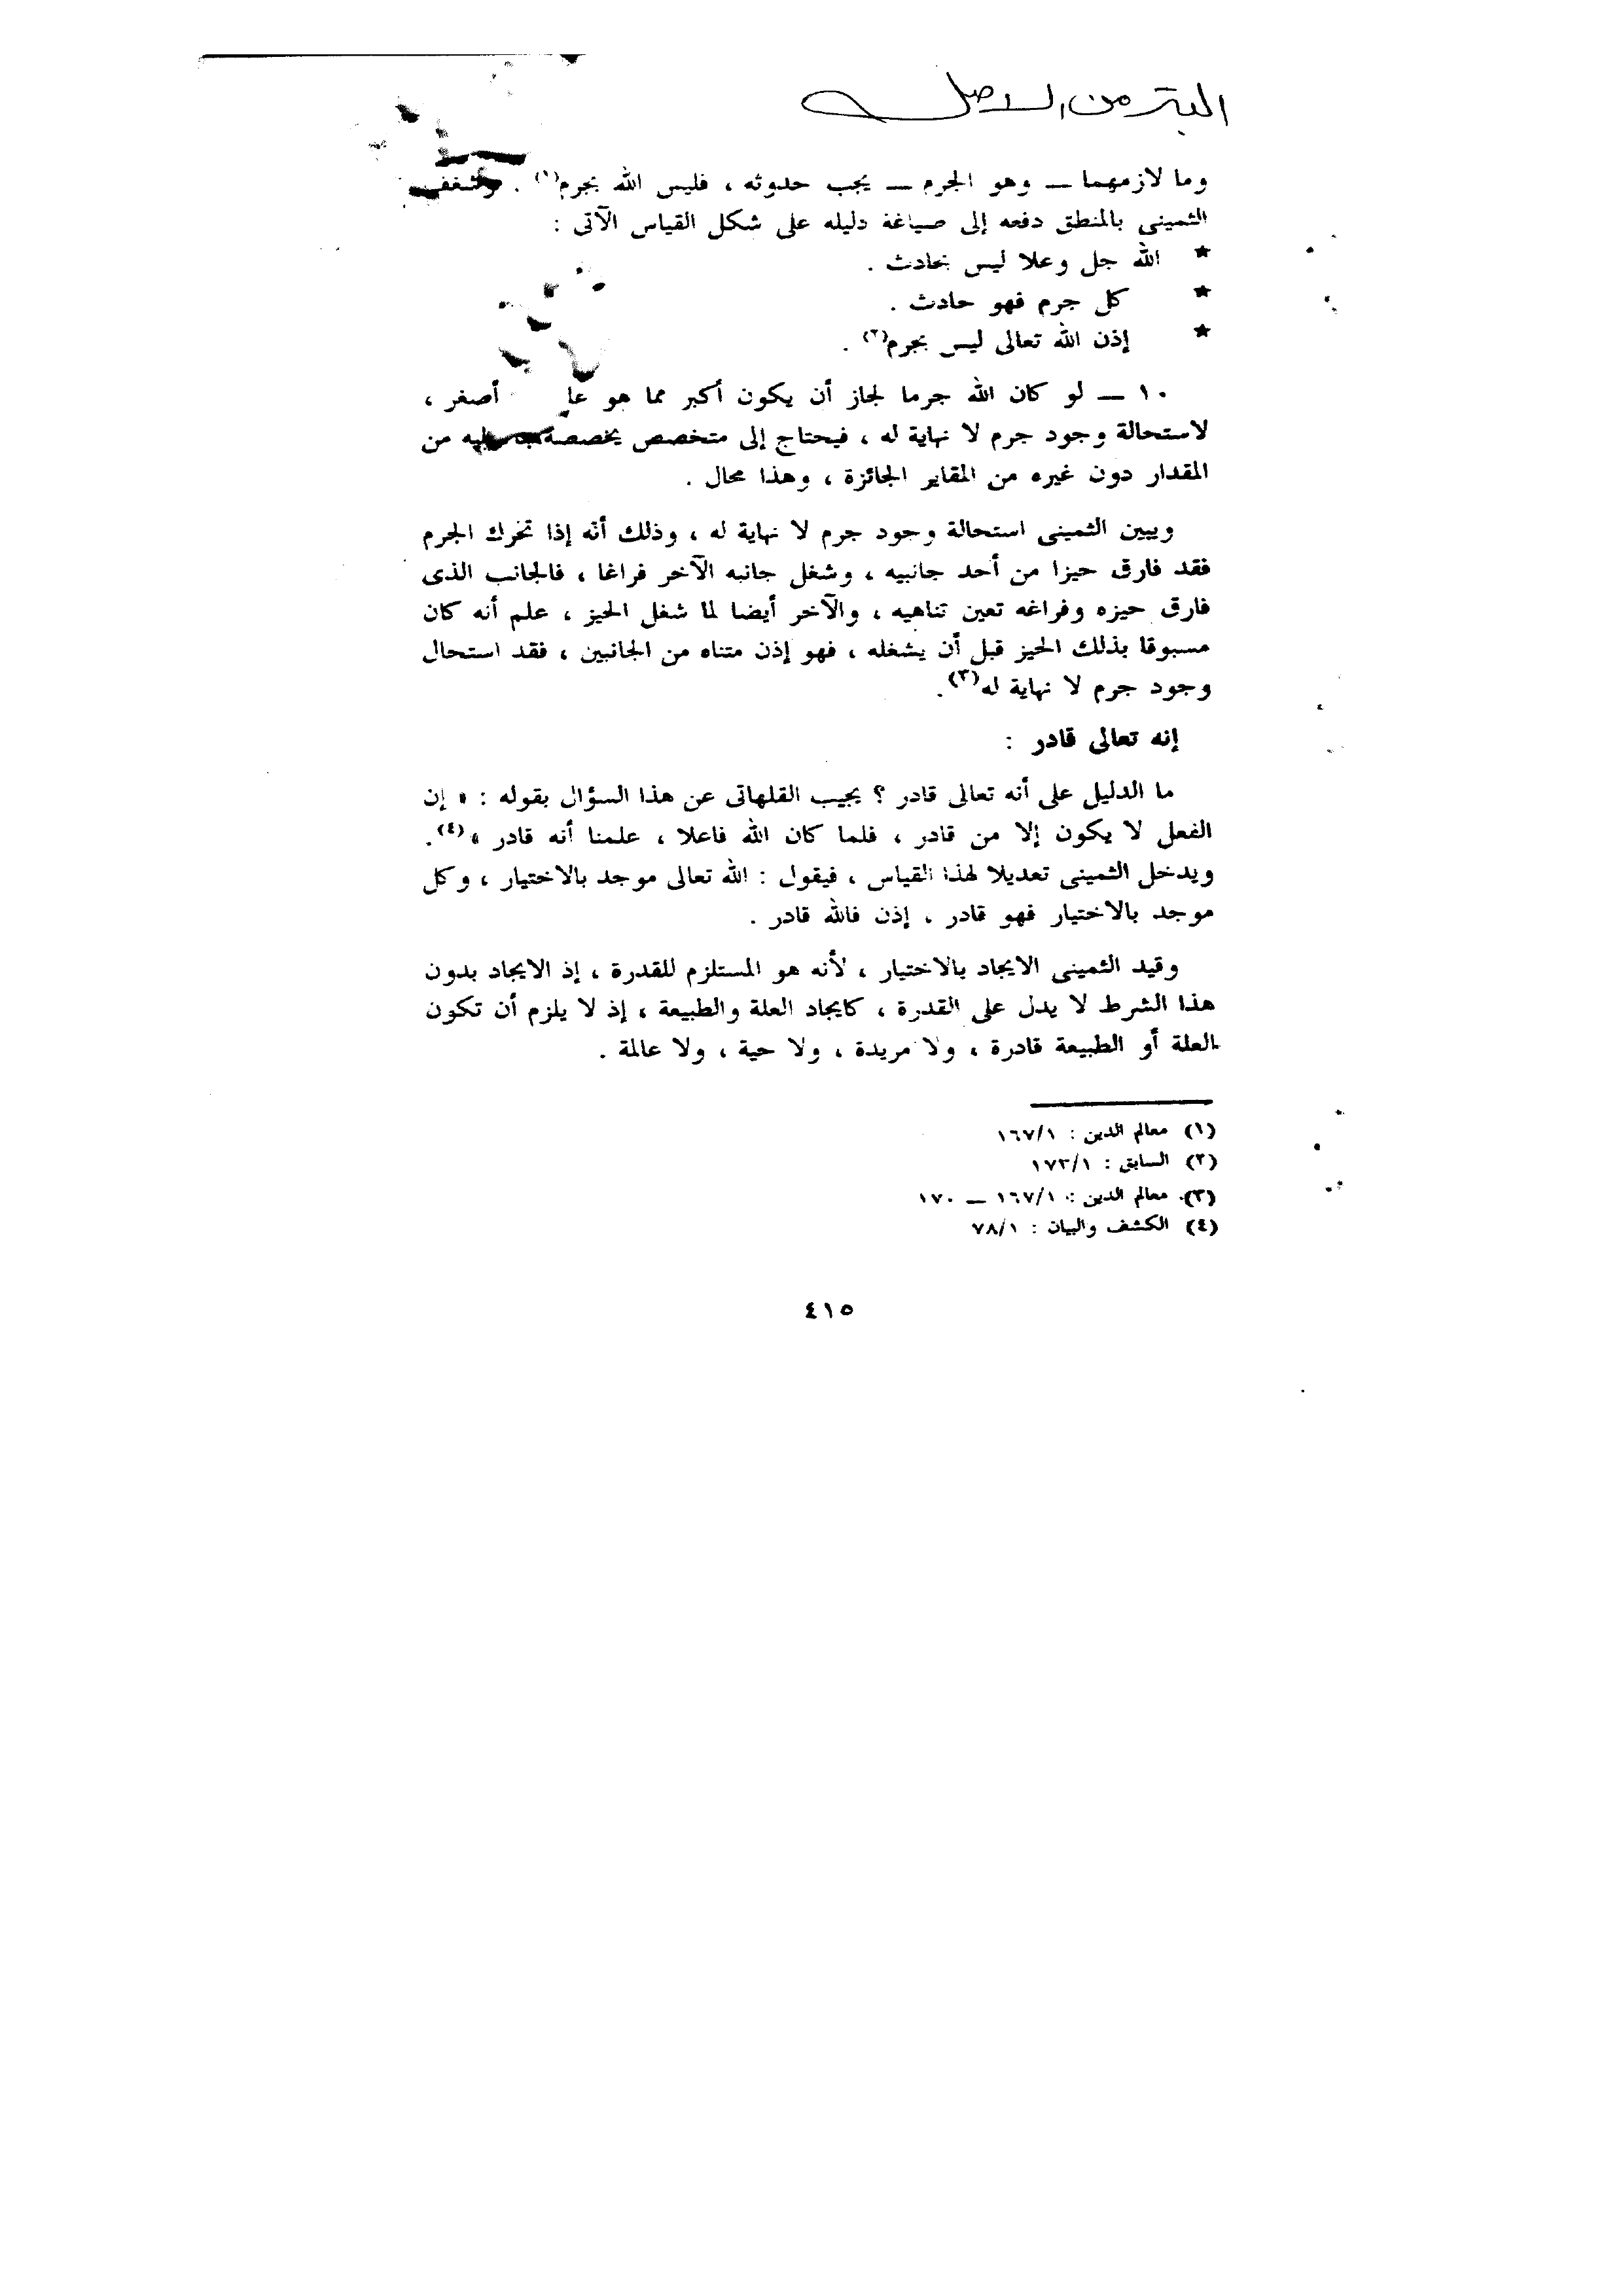 البتر من الاصل
وما لازمهما — وهو الجرم — يجب حدوثه ، فليس الله بجرم(١) . وشغف
الثمينى بالمنطق دفعه إلى صياغة دليله على شكل القياس الآتى :
★ الله جل وعلا ليس بحادث .
★ كل جرم فهو حادث .
★ إذن الله تعالى ليس بجرم(٢) .
١٠ — لو كان الله جرما لجاز أن يكون أكبر مما هو أصغر ،
لاستحالة وجود جرم لا نهاية له ، فيحتاج إلى متخصص يخصصه من
المقدار دون غيره من المقاير الجائزة ، وهذا محال .
ويبين الثمينى استحالة وجود جرم لا نهاية له ، وذلك أنه إذا تحرك الجرم
فقد فارق حيزا من أحد جانبيه ، وشغل جانبه الآخر فراغا ، فالجانب الذى
فارق حيزه وفراغه تعين تناهيه ، والآخر أيضا لما شغل الحيز ، علم أنه كان
مسبوقا بذلك الحيز قبل أن يشغله ، فهو إذن متناه من الجانبين ، فقد استحال
وجود جرم لا نهاية له(٣).
إنه تعالى قادر :
ما الدليل على أنه تعالى قادر ؟ يجيب القلهاتى عن هذا السؤال بقوله : « إن
الفعل لا يكون إلا من قادر ، فلما كان الله فاعلا ، علمنا أنه قادر »(٤).
ويدخل الثمينى تعديلا لهذا القياس ، فيقول : الله تعالى موجد بالاختيار ، وكل
موجد بالاختيار فهو قادر ، إذن فالله قادر .
وقيد الثمينى الايجاد بالاختيار ، لأنه هو المستلزم للقدرة ، إذ الايجاد بدون
هذا الشرط لا يدل على القدرة ، كايجاد العلة والطبيعة ، إذ لا يلزم أن تكون
العلة أو الطبيعة قادرة ، ولا مريدة ، ولا حية ، ولا عالمة .
(١) معالم الدين : ١٦٧/١
(٢) السابق : ١٧٣/١
(٣) معالم الدين : ١٦٧/١ — ١٧٠
(٤) الكشف والبيان : ٧٨/١
٤١٥